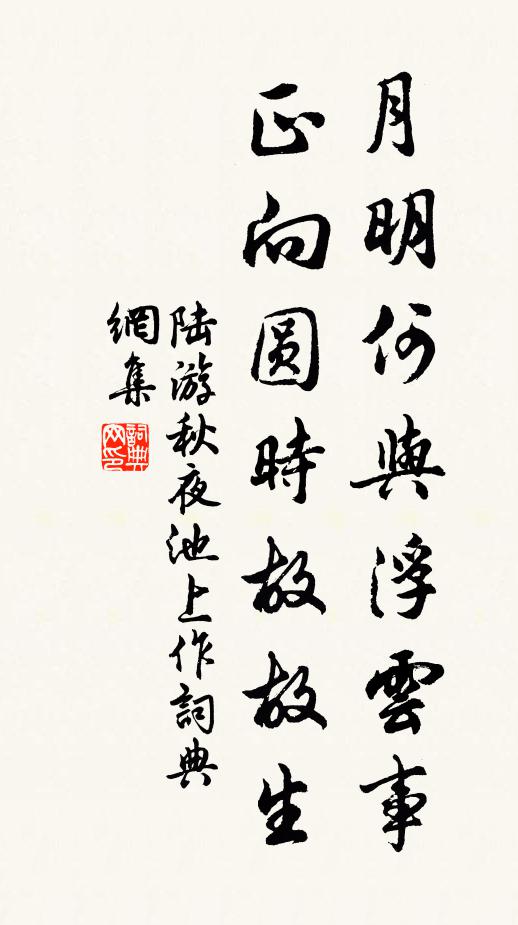 月明何與浮雲事
正向圓時故故生
陸游秋夜池上作詞典
網集
詞典網印